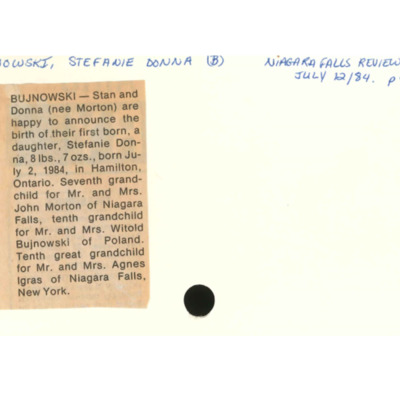 NOWSKI, STEFANIE DONNA (B)
NIAGARA FALLS REVIEW
JULY 12/84. p
BUJNOWSKI — Stan and
Donna (nee Morton) are
happy to announce the
birth of their first born, a
daughter, Stefanie Don-
na, 8 lbs., 7 ozs., born Ju-
ly 2, 1984, in Hamilton,
Ontario. Seventh grand-
child for Mr. and Mrs.
John Morton of Niagara
Falls, tenth grandchild
for Mr. and Mrs. Witold
Bujnowski of Poland.
Tenth great grandchild
for Mr. and Mrs. Agnes
Igras of Niagara Falls,
New York.